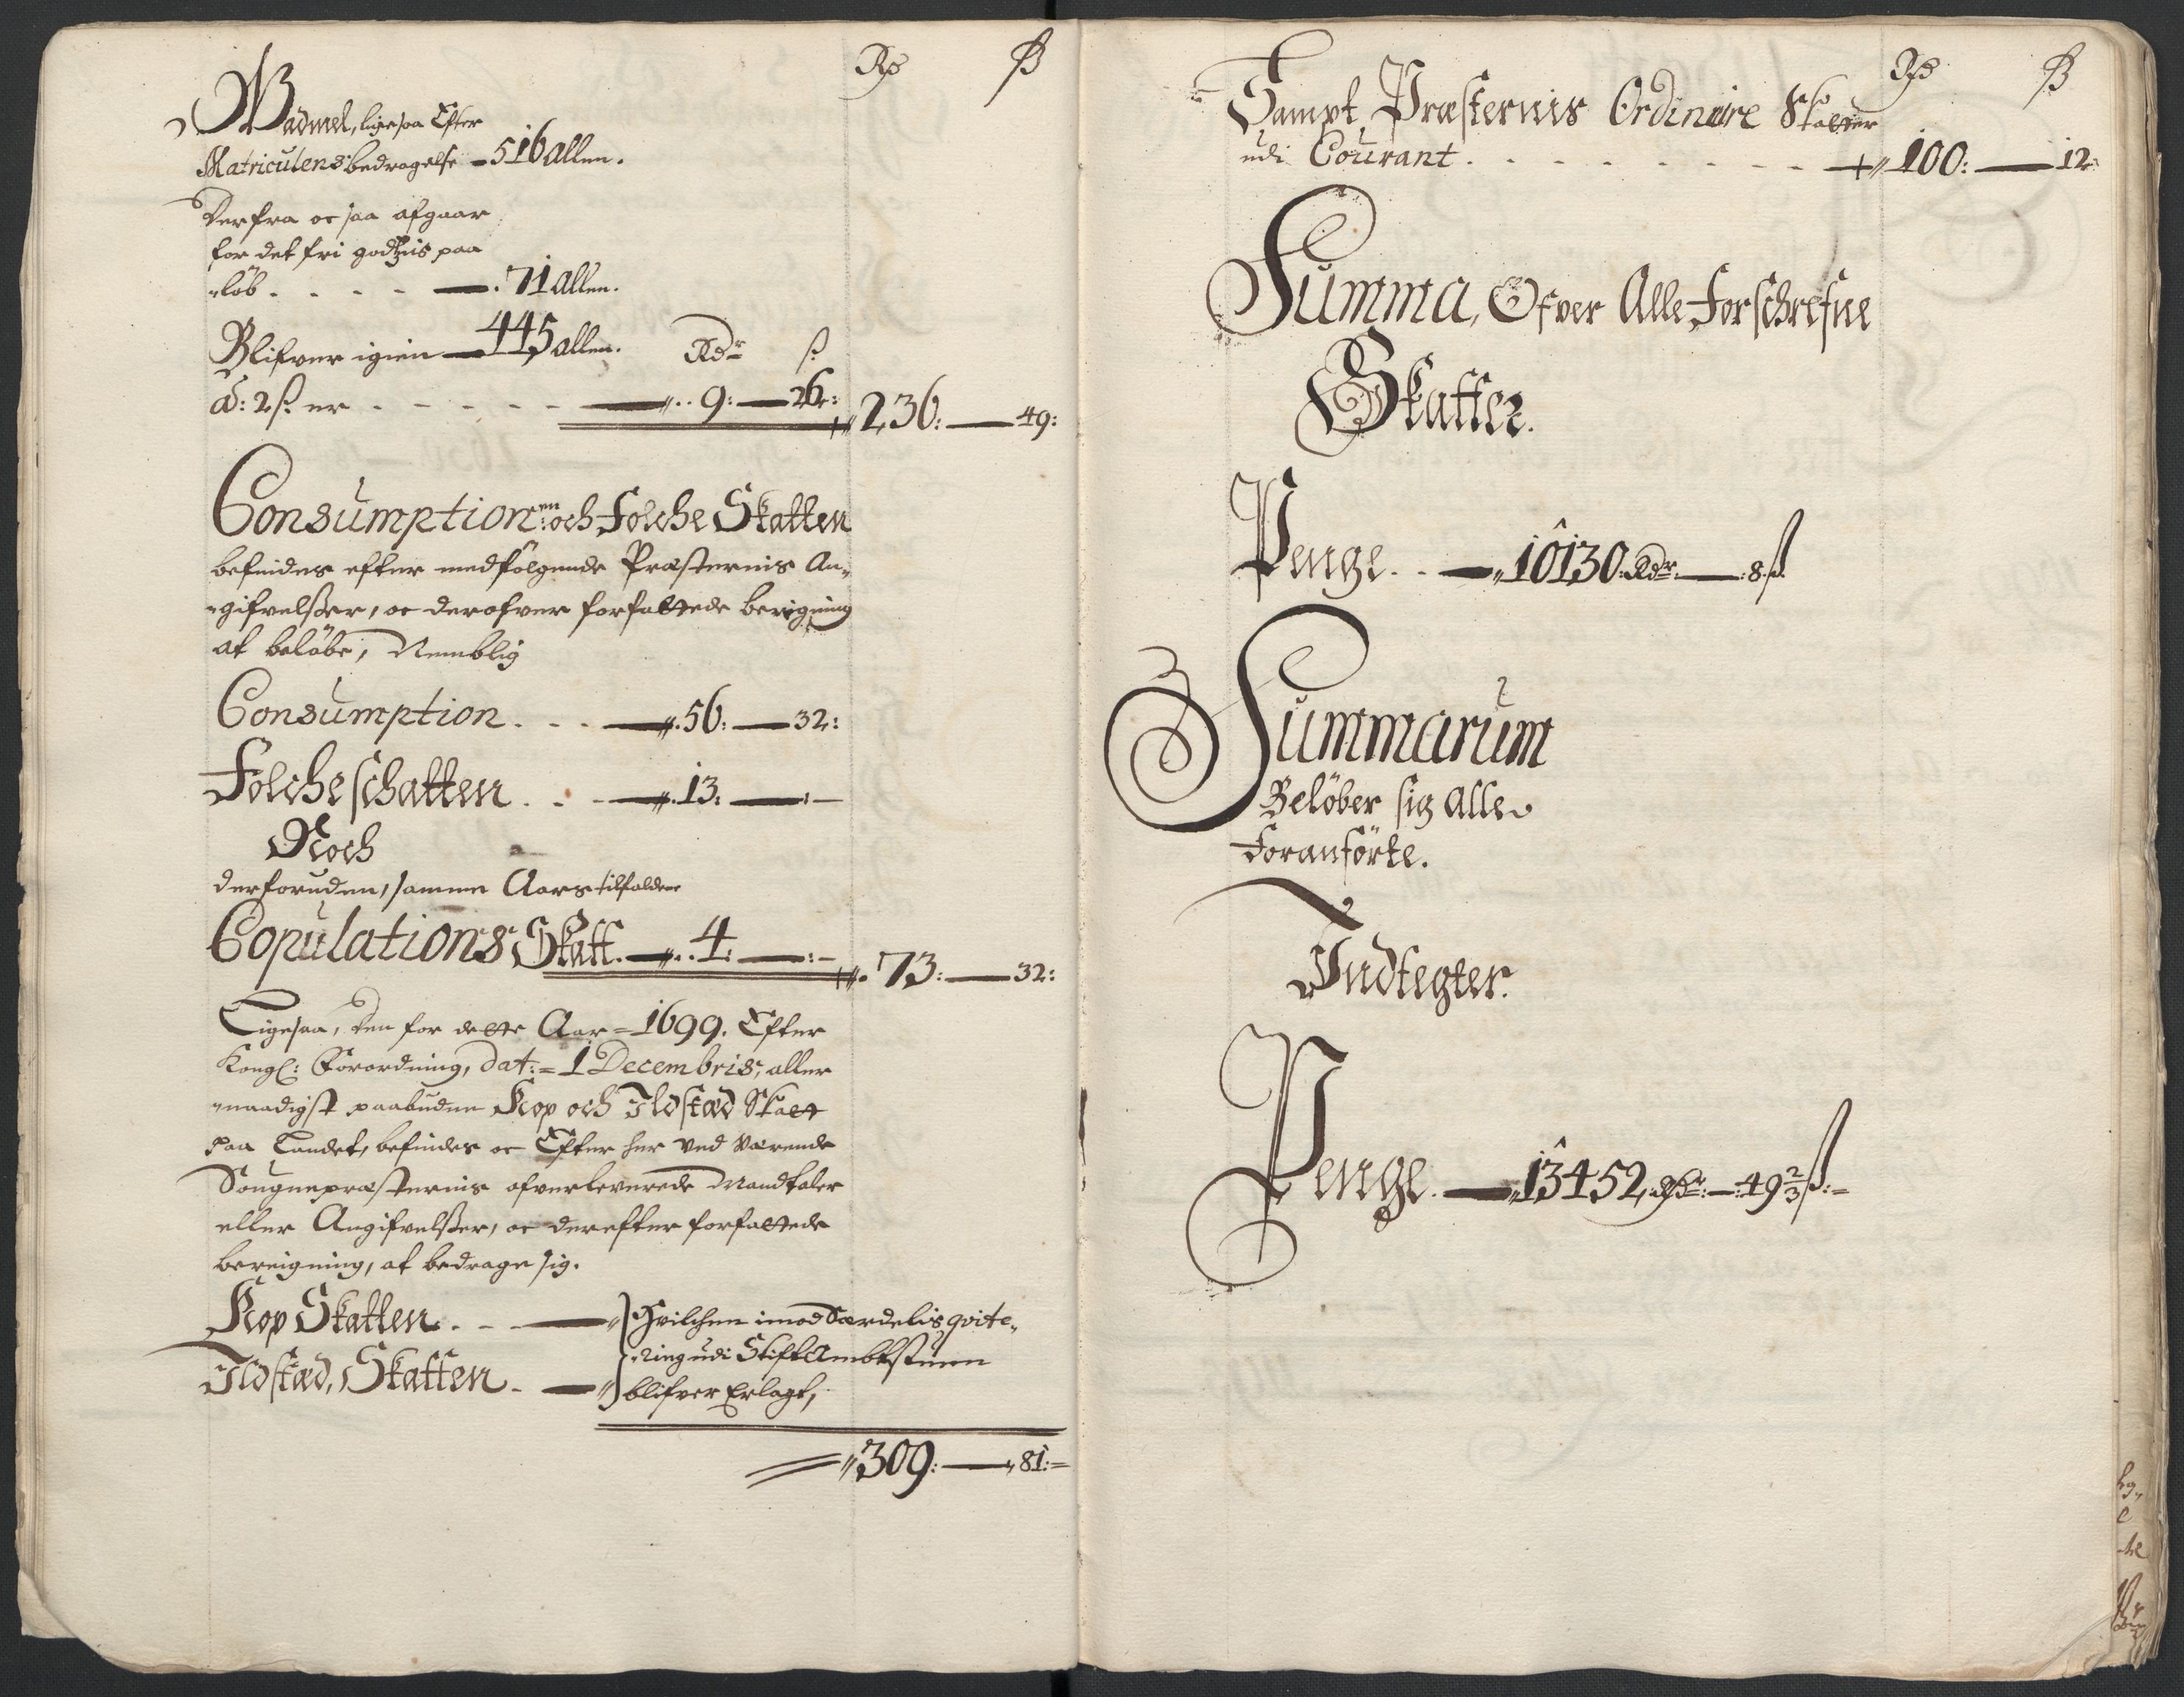 Rd ß
Wadmel, ligesaa Efter
Matriculens bedragelse - 516 allen.
Derfra oc saa afgaar
for det fri godtzis paa
løb . . . . — . 71 allen.
Blifver igien — 445 allen. Rdr ß
a: 2 ß. er . - - - - — 9: — 26: 236: — 49:
Consumption en och Folche Skatten
befindes efter medfølgende Præsternis An-
gifvelßer, oc derofver forfattede beregning
at beløbe, Nemblig
Consumption . . . — 56: — 32:
Folcheschatten . . - — 13: — : —
Noch
derforuden, samme Aars tilfaldene
Copulations Skatt. — 4: — : — 73: — 32:
Ligesaa, den for dette Aar = 1699. Efter
Kongl: Forordning, dat: = 1 Decembris, aller
naadigst paabudne Kop och Ildstæd Skatt
paa Landet, befindes oc Efter her ved værende
Sougnepræsternis ofverleverede Mandtaler
eller Angifvelßer, oc derefter forfattede
bereigning, at bedrage sig.
Kop Skatten . - - — Hvilchen imod Særdelis qvite-
ring udi StiftAmbtstuen
Ildstæd, Skatten - — blifver Erlagt,
309: — 81: =
Rd ß
Sampt Præsternis Ordinaire Skatter
udi Courant . - - - - - - - - — 100: — 12:
Summa, Ofver Alle Forschrefne
Skatter.
Penge . . — 10130 Rdr — : 8 ß
Summarum
Beløber sig Alle
Foranførte.
Indtegter.
Penge . — 13452 Rdr: — : 49 2/3 ß: =